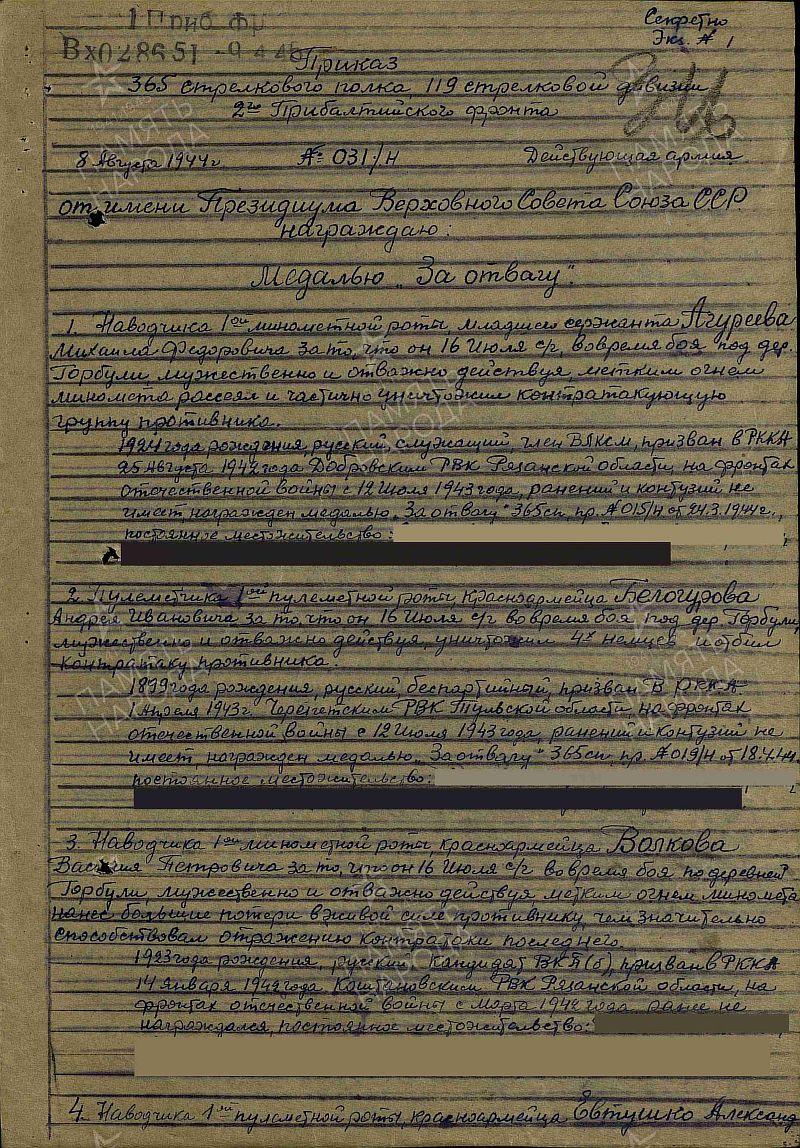 1 Приб фр
Вх028651 -9 4 4
Секретно
Экз. № 1
Приказ
365 стрелкового полка 119 стрелковой дивизии
2го Прибалтийского фронта
8 Августа 1944 г. № 031/н Действующая армия
от имени Президиума Верховного Совета Союза ССР
награждаю:
Медалью „За отвагу".
1. Наводчика 1ой минометной роты, младшего сержанта Агуреева
Михаила Федоровича за то, что он 16 Июля с/г, во время боя под дер.
Горбули, мужественно и отважно действуя метким огнем
миномета рассеял и частично уничтожил контратакующую
группу противника.
1924 года рождения, русский, служащий, член ВЛКСМ, призван в РККА
25 Августа 1942 года Добровским РВК Рязанской области, на фронтах
отечественной войны с 12 Июля 1943 года, ранений и контузий не
имеет, награжден медалью „За отвагу" 365 сп, пр. № 015/н от 24.3.1944 г.,
постоянное местожительство:
2. Пулеметчика 1ой пулеметной роты, красноармейца Белогурова
Андрея Ивановича за то, что он 16 Июля с/г во время боя под дер. Горбули,
мужественно и отважно действуя, уничтожил 4х немцев и отбил
контратаку противника.
1899 года рождения, русский, беспартийный, призван в РККА
1 Апреля 1943 г. Черепетским РВК Тульской области, на фронтах
отечественной войны с 12 Июля 1943 года, ранений и контузий не
имеет, награжден медалью „За отвагу" 365 сп, пр. № 019/н от 18.4.44 г.
постоянное местожительство:
3. Наводчика 1ой минометной роты красноармейца Волкова
Василия Петровича за то, что он 16 Июля с/г во время боя под деревней
Горбули, мужественно и отважно действуя, метким огнем миномета
нанес большие потери в живой силе противнику, чем значительно
способствовал отражению контратаки последнего.
1923 года рождения, русский, кандидат ВКП(б), призван в РККА
14 Января 1942 года РВК Рязанской области, на
фронтах отечественной войны с Марта 1942 года, ранее не
награждался, постоянное местожительство:
4. Наводчика 1ой пулеметной роты, красноармейца Евтушко Александ